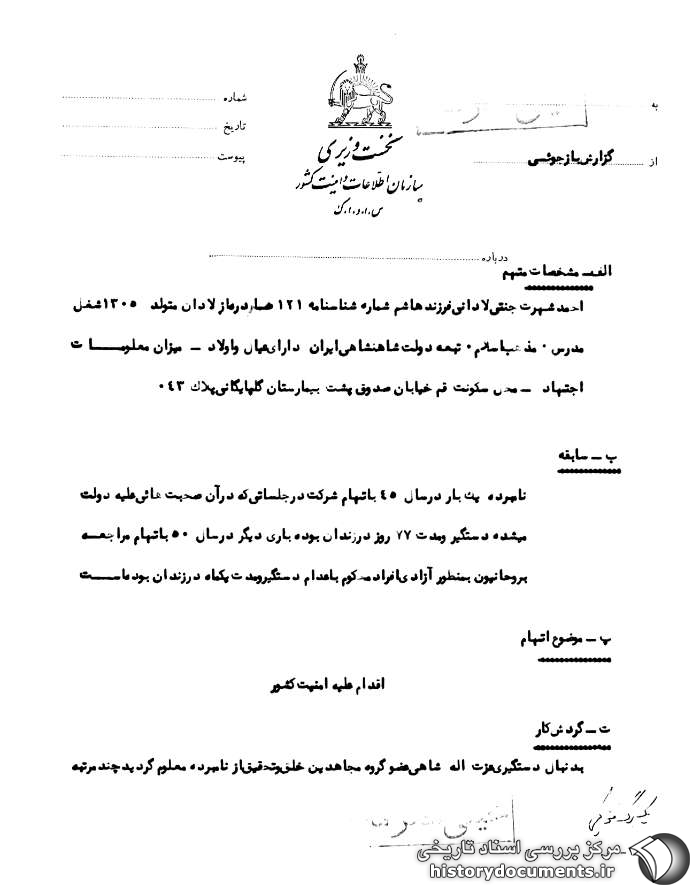 به
از گزارش بازجوئی
نخست وزیری
سازمان اطلاعات و امنیت کشور
س.ا.و.ا.ک
شماره
تاریخ
پیوست
درباره
الف ــ مشخصات متهم
احمد شهرت جنتی لادانی فرزند هاشم شماره شناسنامه ۱۲۱ صادره از لادان متولد ۱۳۰۵ شغل
مدرس ۰ مذهب اسلام ۰ تبعه دولت شاهنشاهی ایران دارای عیال و اولاد ــ میزان معلومات
اجتهاد ــ محل سکونت قم خیابان صدوق پشت بیمارستان گلپایگانی پلاک ۰۴۳
ب ــ سابقه
نامبرده یک بار در سال ۴۵ باتهام شرکت در جلساتی که در آن صحبت هائی علیه دولت
میشده دستگیر و مدت ۷۷ روز در زندان بوده باری دیگر در سال ۵۰ باتهام مراجعه
بروحانیون بمنظور آزادی افراد محکوم باعدام دستگیر و مدت یکماه در زندان بوده است
پ ــ موضوع اتهام
اقدام علیه امنیت کشور
ت ــ گردش کار
بدنبال دستگیری عزت اله شاهی عضو گروه مجاهدین خلق و تحقیق از نامبرده معلوم گردید چند مرتبه
مرکز بررسی اسناد تاریخی
historydocuments.ir